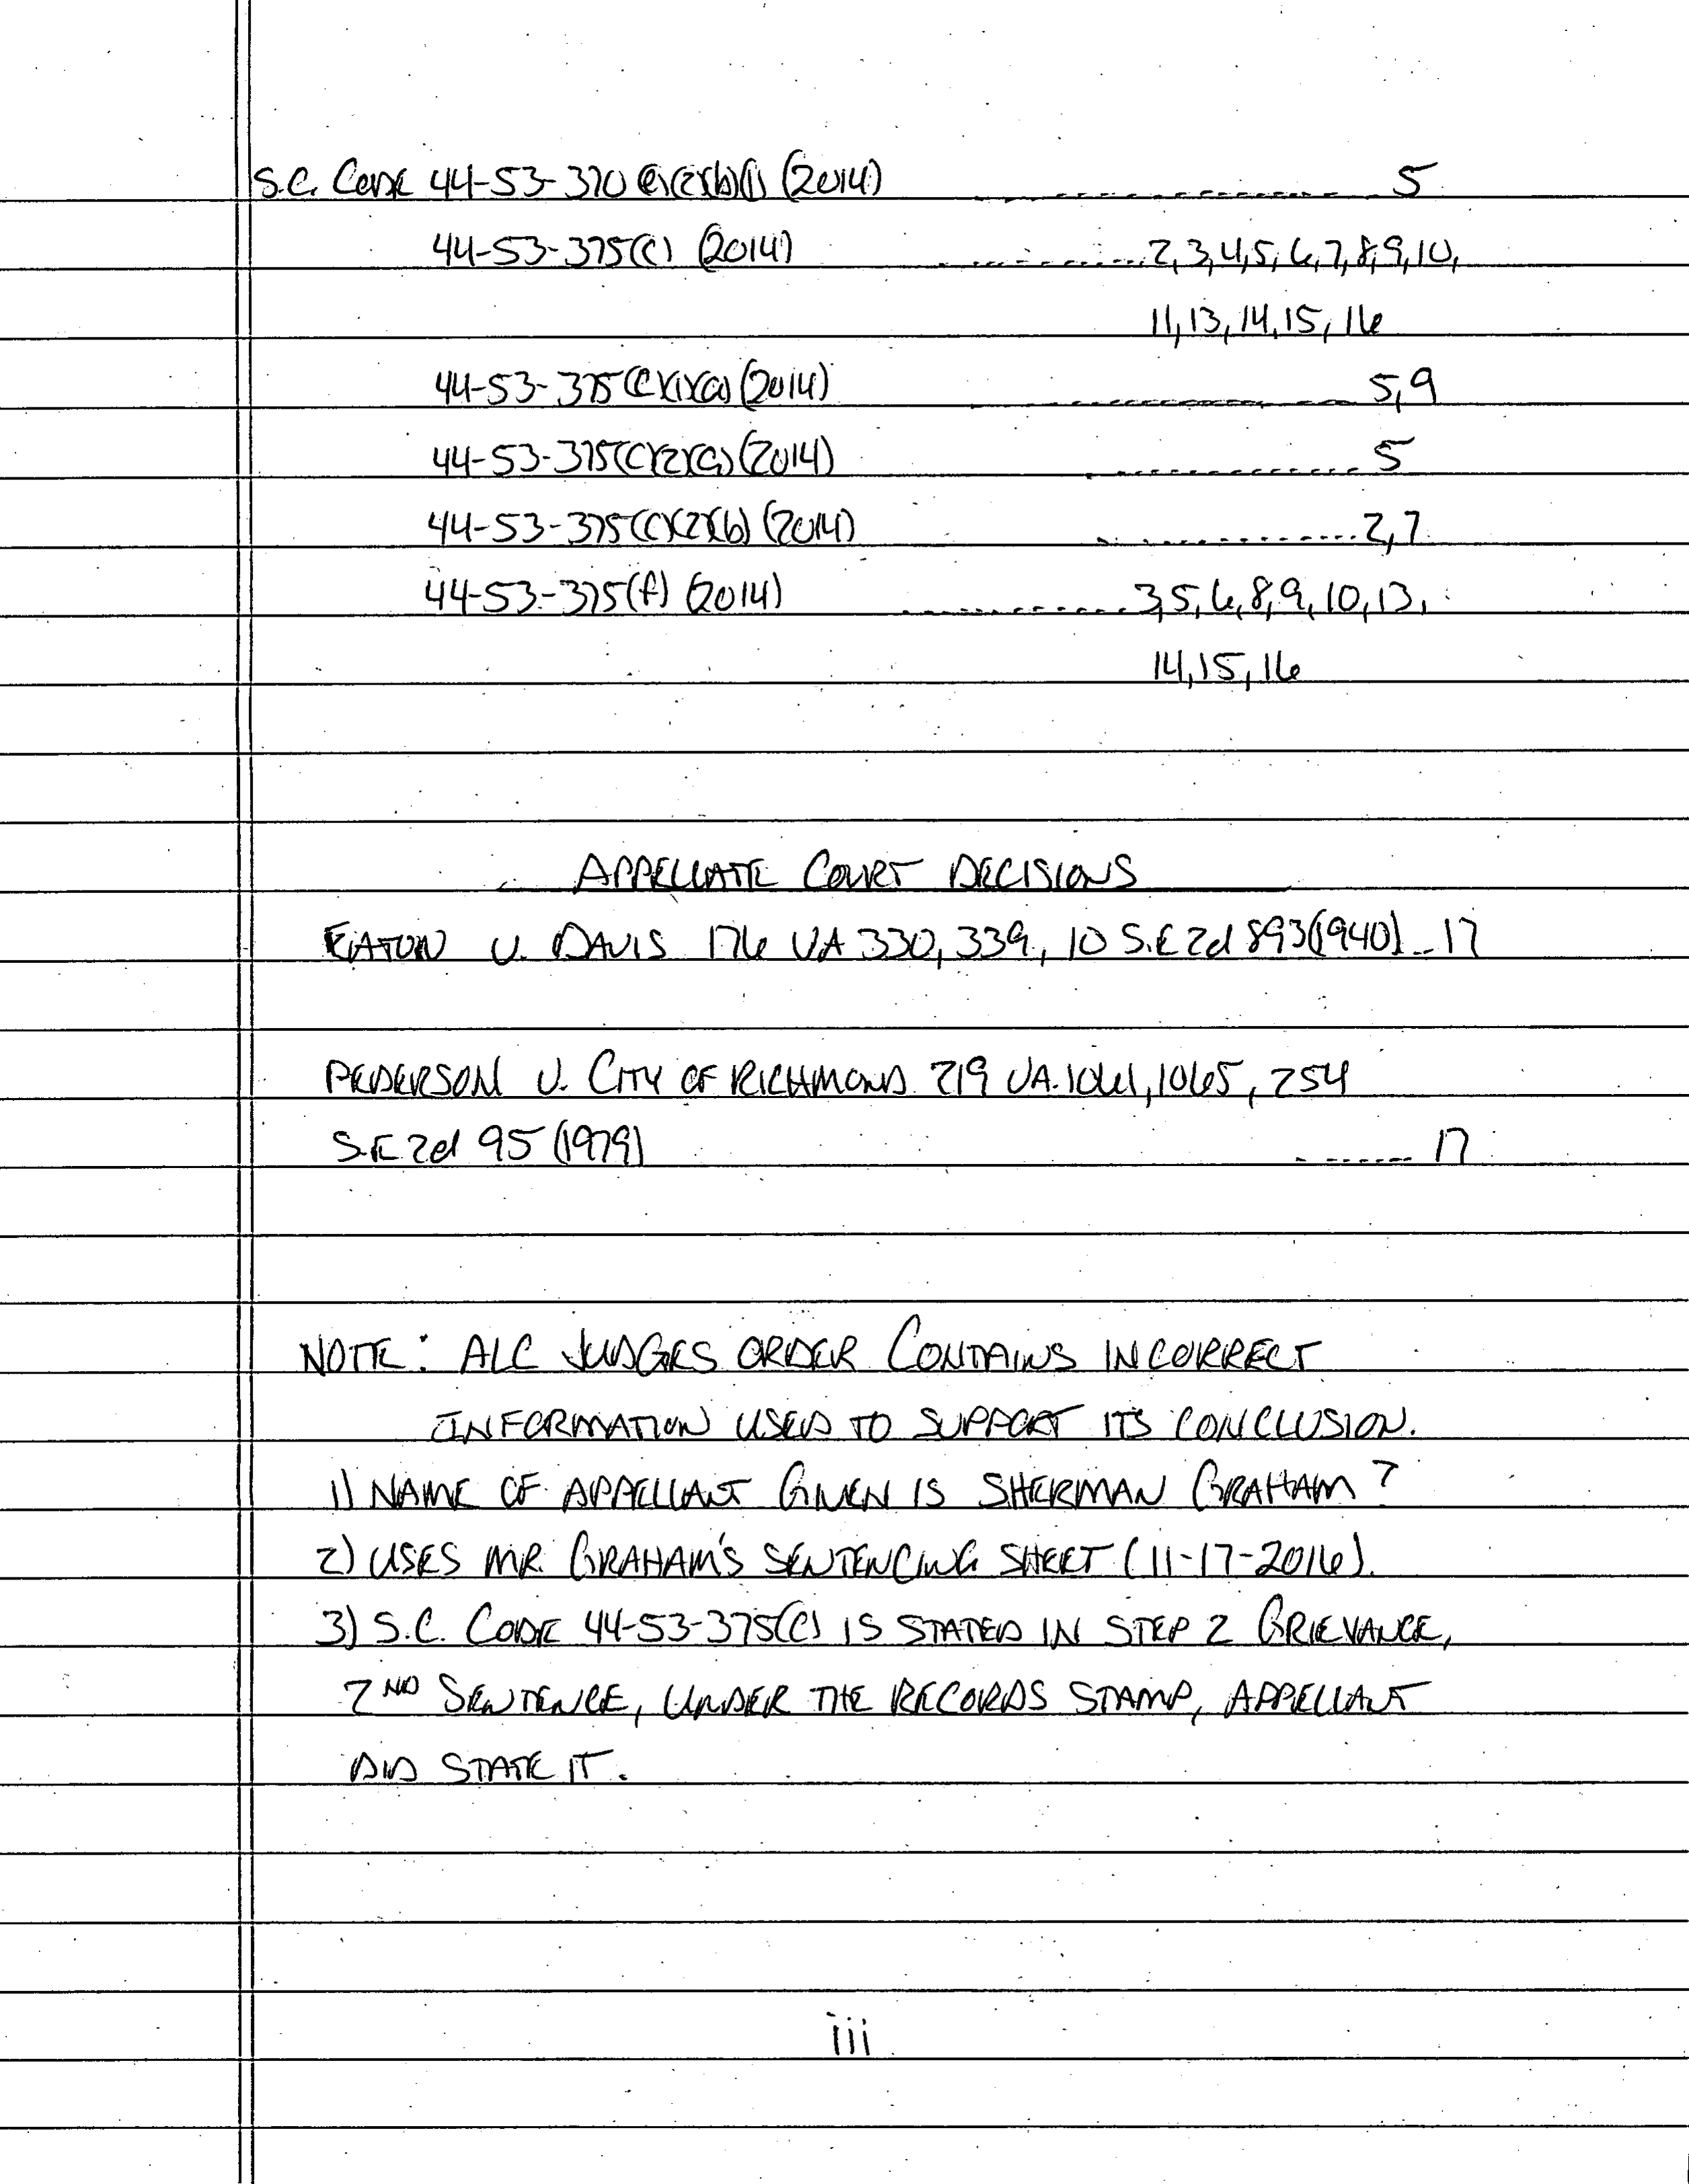 S.C. CODE 44-53-370(e)(2)(b)(1) (2014) ................ 5
44-53-375(C) (2014) ............ 2,3,4,5,6,7,8,9,10,
11,13,14,15,16
44-53-375(C)(1)(a) (2014) ................ 5,9
44-53-375(C)(2)(a) (2014) ................ 5
44-53-375(C)(2)(b) (2014) ................ 2,7
44-53-375(f) (2014) ............ 3,5,6,8,9,10,13,
14,15,16
APPELLATE COURT DECISIONS
EATON V. DAVIS 176 VA 330, 339, 10 S.E 2d 893(1940) .. 17
PEDERSON V. CITY OF RICHMOND 219 VA. 1061, 1065, 254
S.E 2d 95 (1979) ....... 17
NOTE: ALC JUDGES ORDER CONTAINS INCORRECT
INFORMATION USED TO SUPPORT ITS CONCLUSION.
1) NAME OF APPELLANT GIVEN IS SHERMAN GRAHAM?
2) USES MR. GRAHAM'S SENTENCING SHEET (11-17-2016).
3) S.C. CODE 44-53-375(C) IS STATED IN STEP 2 GRIEVANCE,
2ND SENTENCE, UNDER THE RECORDS STAMP, APPELLANT
DID STATE IT.
iii